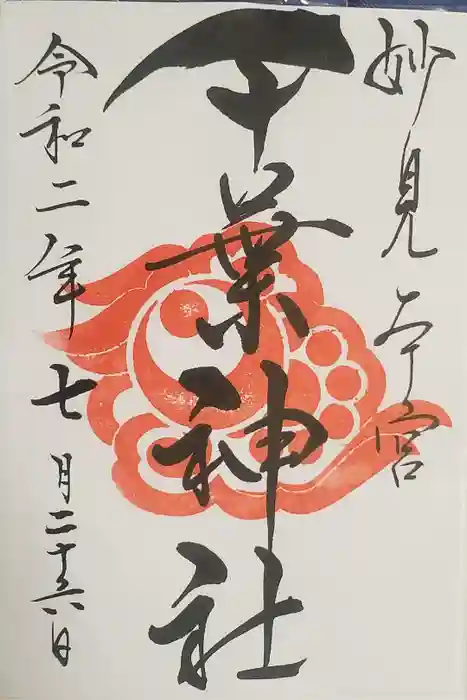 妙見本宮
千葉神社
令和二年七月二十六日